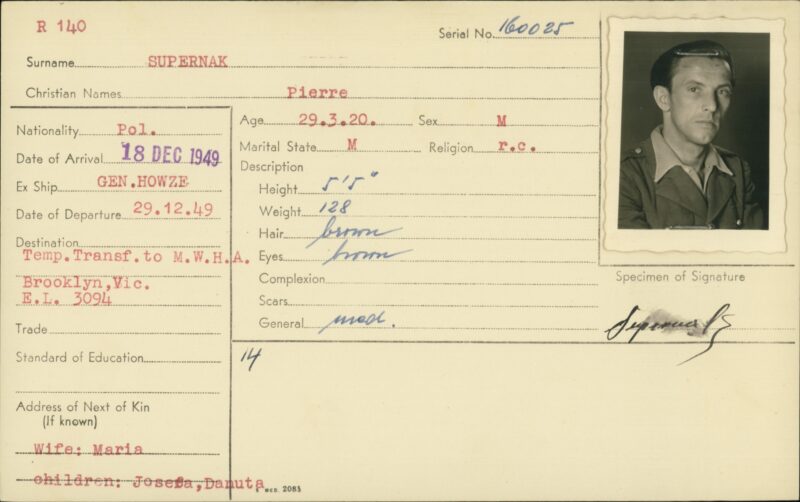 R 140
Serial No. 160025
Surname SUPERNAK
Christian Names Pierre
Nationality Pol.
Date of Arrival 18 DEC 1949
Ex Ship GEN.HOWZE
Date of Departure 29.12.49
Destination
Temp.Transf.to M.W.H.A.
Brooklyn,Vic.
E.L. 3094
Trade
Standard of Education
Address of Next of Kin
(If known)
Wife: Maria
children: Josefa,Danuta
Age 29.3.20. Sex M
Marital State M Religion r.c.
Description
Height 5'5"
Weight 128
Hair brown
Eyes brown
Complexion
Scars
General med.
14
Specimen of Signature
2085